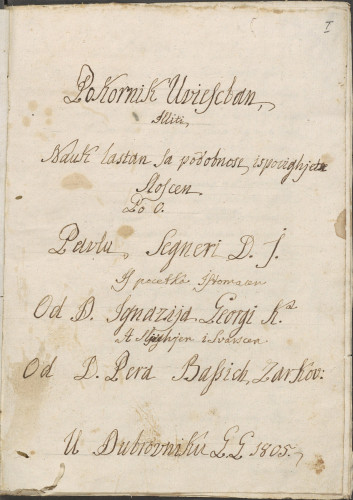 I
Pokornik Uviesctan,
Illiti,
Nauk lastan sa podobnose, ispovighjeta
Sloscen
Po O.
Pavlu, Segneri D. J.
I pocetka Istomacen
Od D. Ignazija Georgi K.
A svarscen
Od D. Pera Bassich, Zarkov:
U Dubrovniku G.G. 1805.